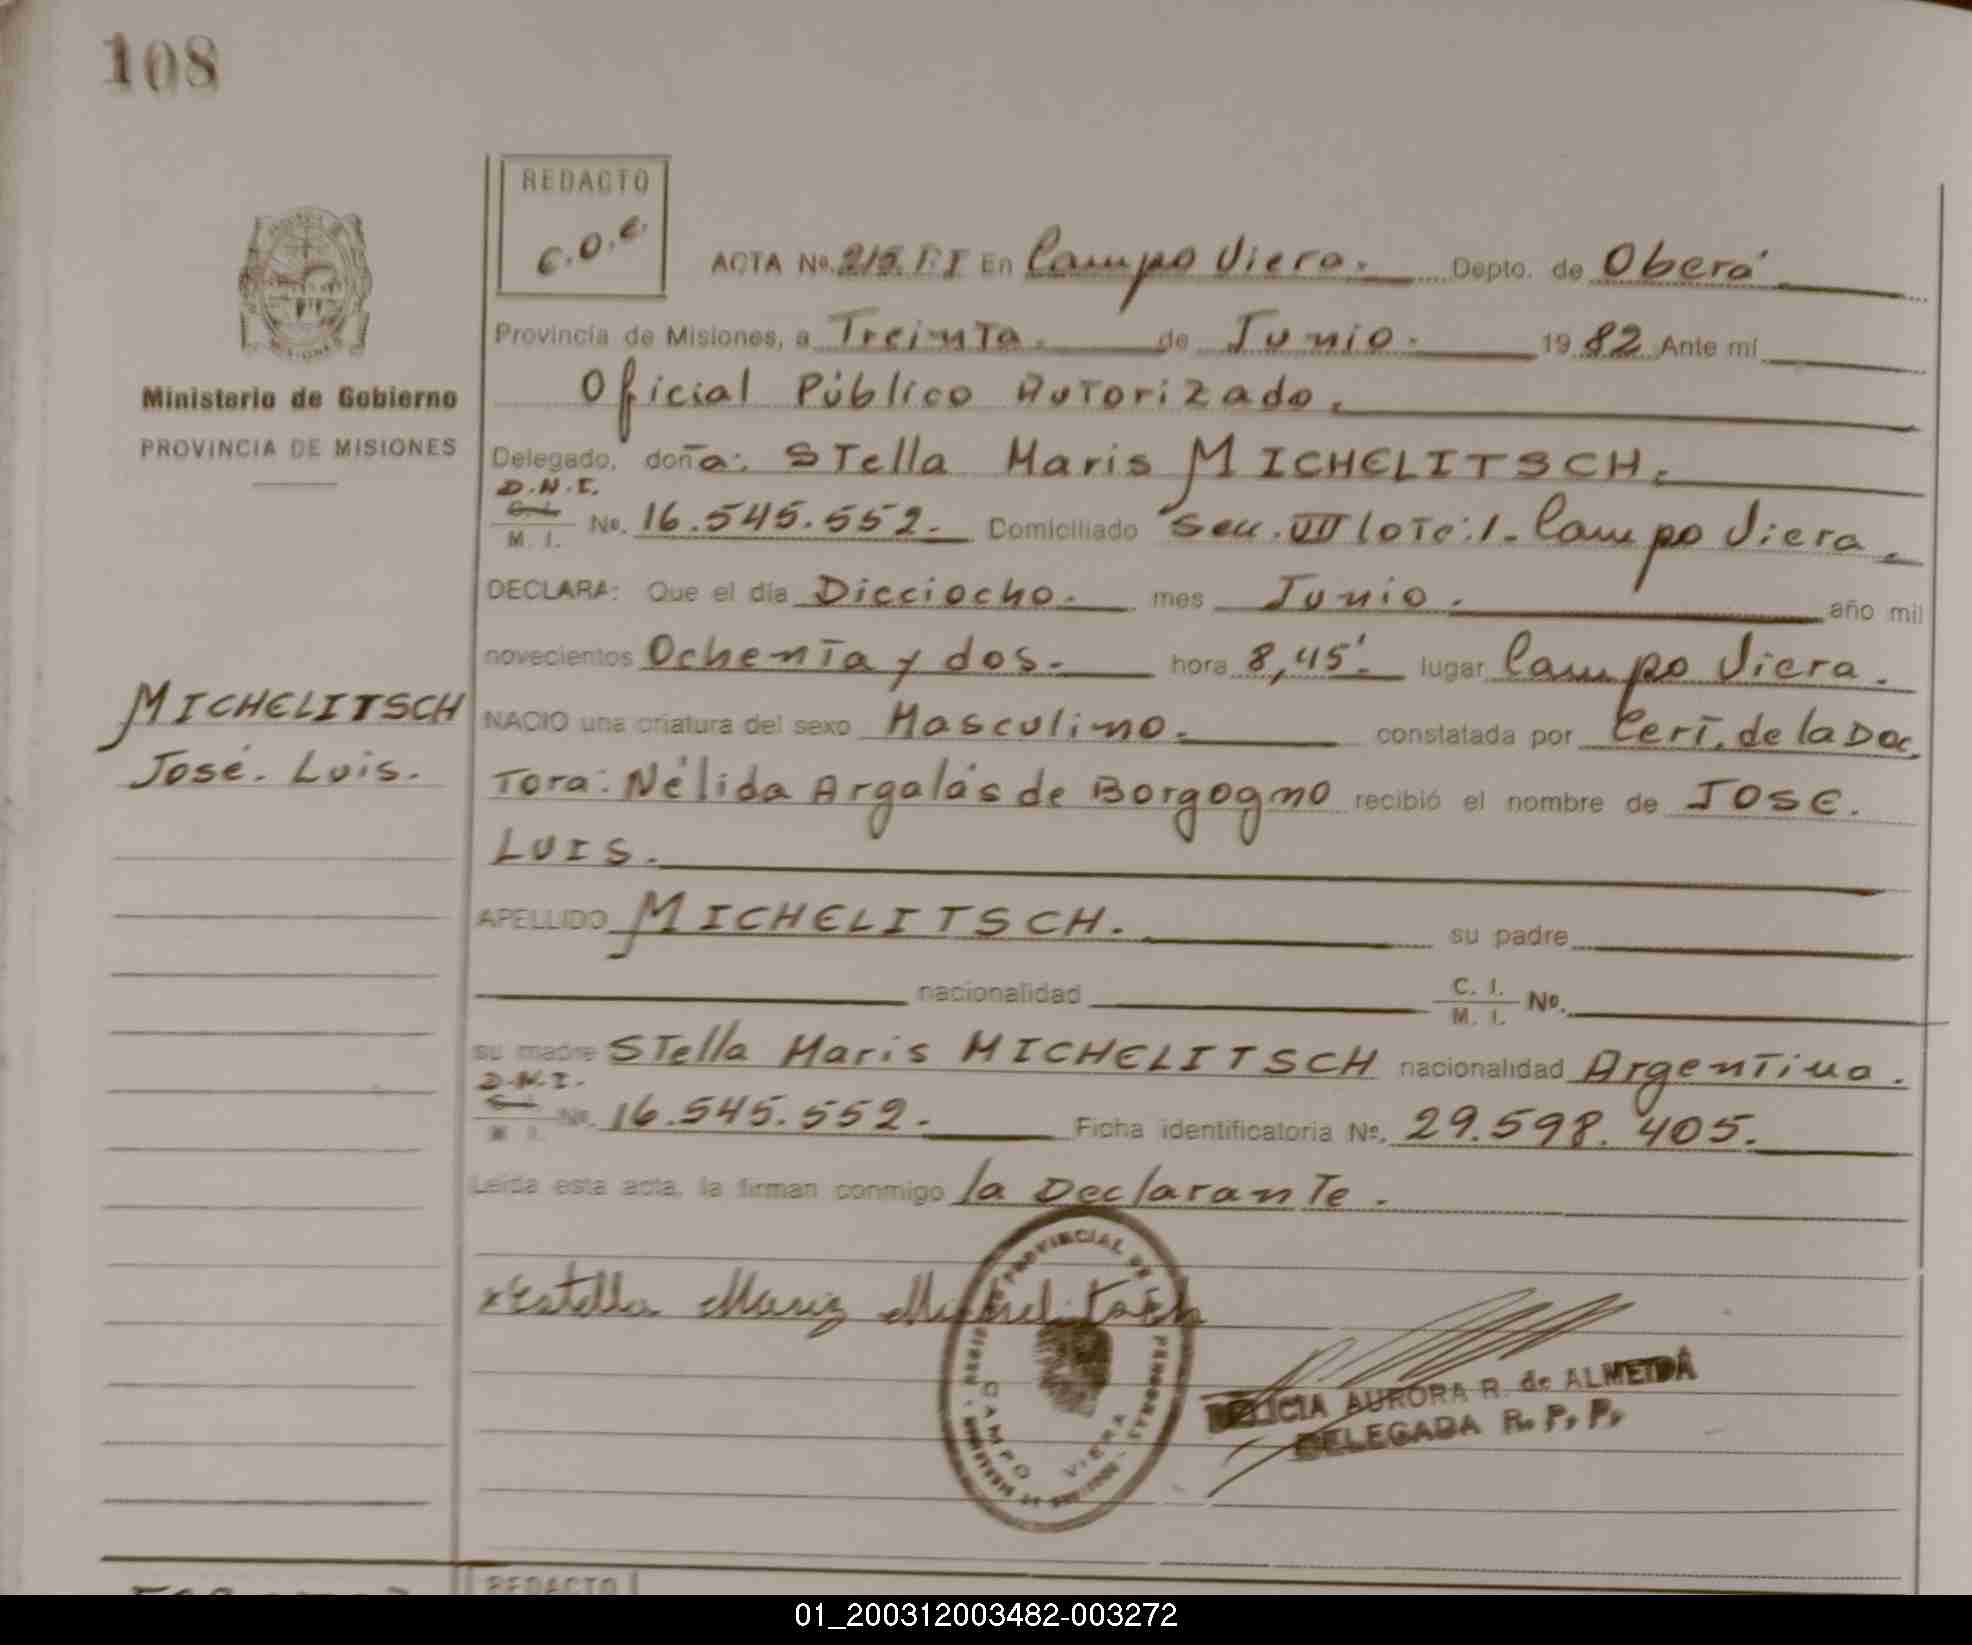 108
REDACTO
C.O.E.
ACTA Nº 215. F:I En Campo Viera. Depto. de Oberá
Provincia de Misiones, a Treinta. de Junio. 1982 Ante mí
Oficial Público Autorizado.
Ministerio de Gobierno
PROVINCIA DE MISIONES
Delegado, doña: Stella Maris MICHELITSCH.
D.N.I.
C. I.
M. I. Nº. 16.545.552. Domiciliado Sec. VII lote:1. Campo Viera.
DECLARA: Que el día Dieciocho. mes Junio. año mil
novecientos Ochenta y dos. hora 8,45'. lugar Campo Viera.
MICHELITSCH
José. Luis.
NACIO una criatura del sexo Masculino. constatada por Cert. de la Doc
tora: Nélida Argalás de Borgogno recibió el nombre de JOSE.
LUIS.
APELLIDO MICHELITSCH. su padre
nacionalidad C. I. M. I. Nº.
su madre Stella Maris MICHELITSCH nacionalidad Argentina.
D.N.I.
C. I.
M. I. Nº. 16.545.552. Ficha identificatoria Nº. 29.598.405.
Leída esta acta, la firman conmigo la Declarante.
Estella Mariz Michelitsch
PROVINCIAL DE
CAMPO VIERA
FELICIA AURORA R. de ALMEIDA
DELEGADA R. P. P.
REDACTO
01_200312003482-003272